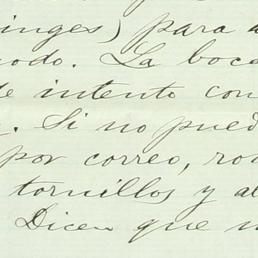 inges) para a
odo. La boca
de intento con
. Si no pued
por correo, ro
tornillos y al
Dicen que n